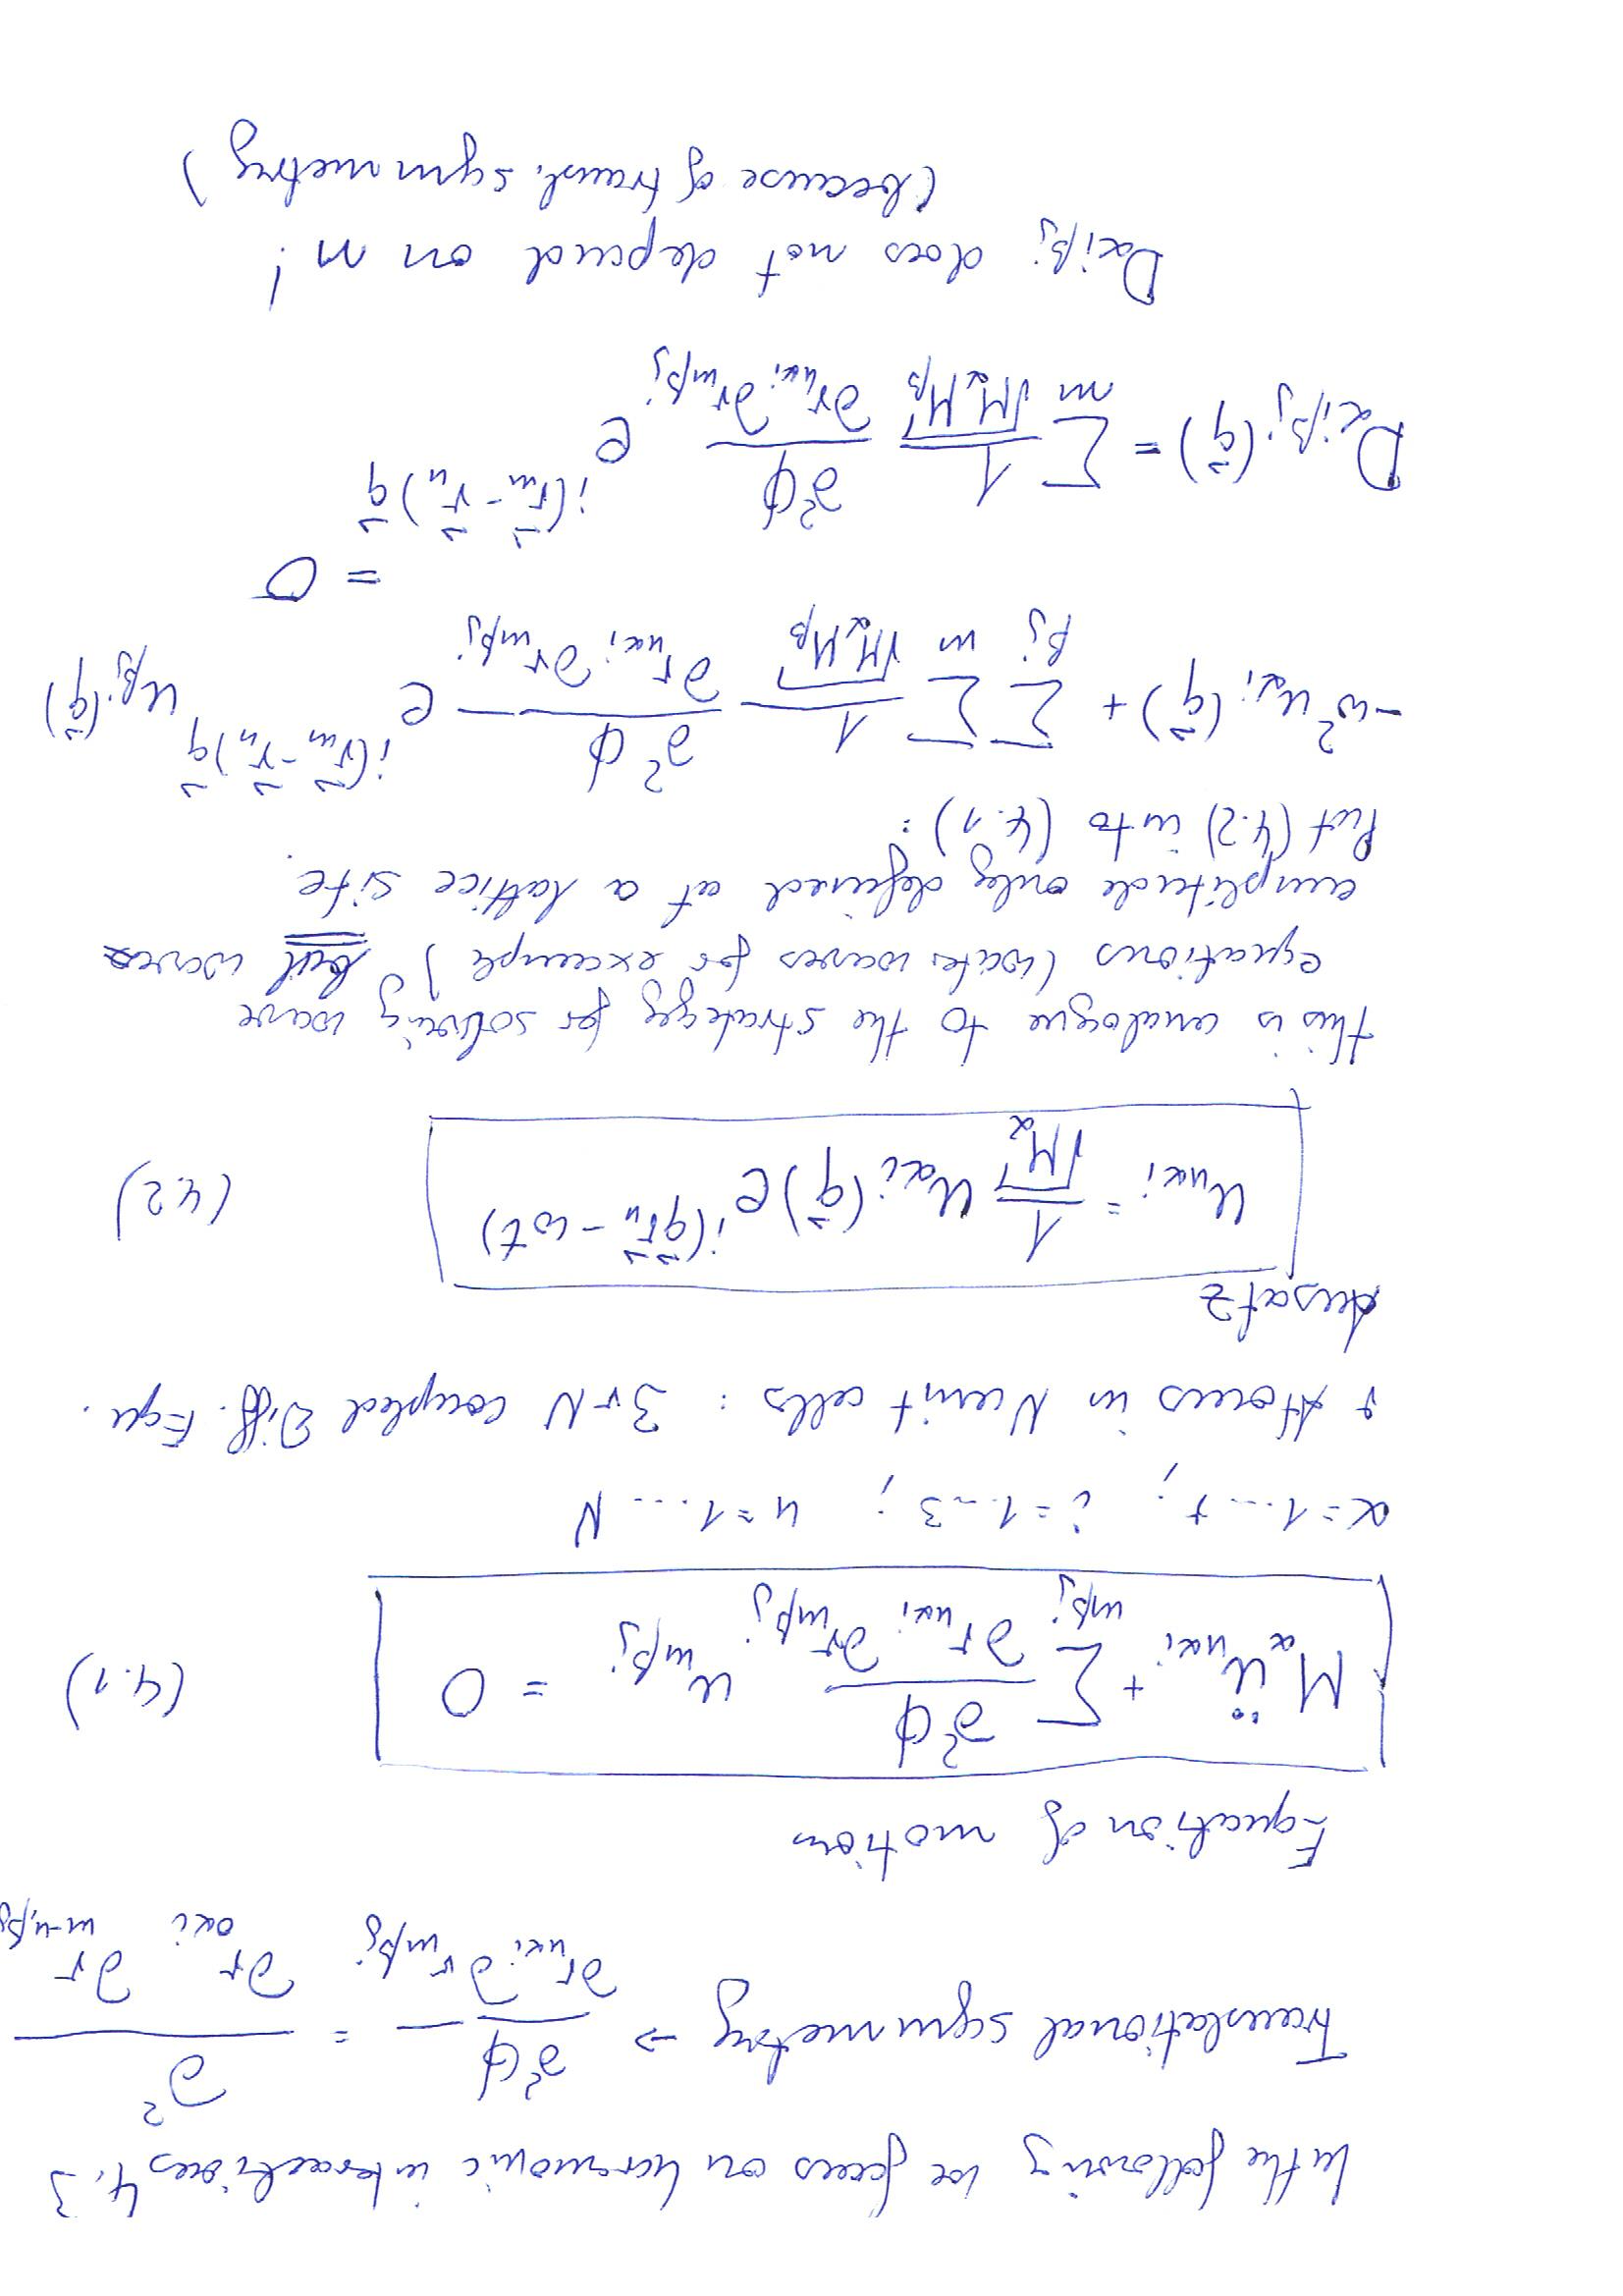 In the following we focus on harmonic interactions 4.3
Translational symmetry ⇒ ∂²Φ / ∂r_nαi ∂r_mβj = ∂² / ∂r_0αi ∂r_m-n,βj
Equation of motion
M_α ü_nαi + Σ_mβj ∂²Φ / ∂r_nαi ∂r_mβj u_mβj = 0 (4.1)
α = 1 ... r; i = 1 - 3; n = 1 ... N
r Atoms in N unit cells: 3rN coupled Diff. Equ.
Ansatz
u_nαi = 1/√M_α u_αi (q⃗) e^i(q⃗r⃗_n - ωt) (4.2)
this is analogue to the strategy for solving wave
equations (water waves for example) but waves
amplitude only defined at a lattice site.
Put (4.2) into (4.1):
-ω² u_αi (q⃗) + Σ_βj Σ_m 1/√M_αM_β ∂²Φ / ∂r_nαi ∂r_mβj e^i(r⃗_m - r⃗_n)q⃗ u_βj (q⃗)
= 0
D_αiβj (q⃗) = Σ_m 1/√M_αM_β ∂²Φ / ∂r_nαi ∂r_mβj e^i(r⃗_m - r⃗_n)q⃗
D_αiβj does not depend on n!
(because of transl. symmetry)